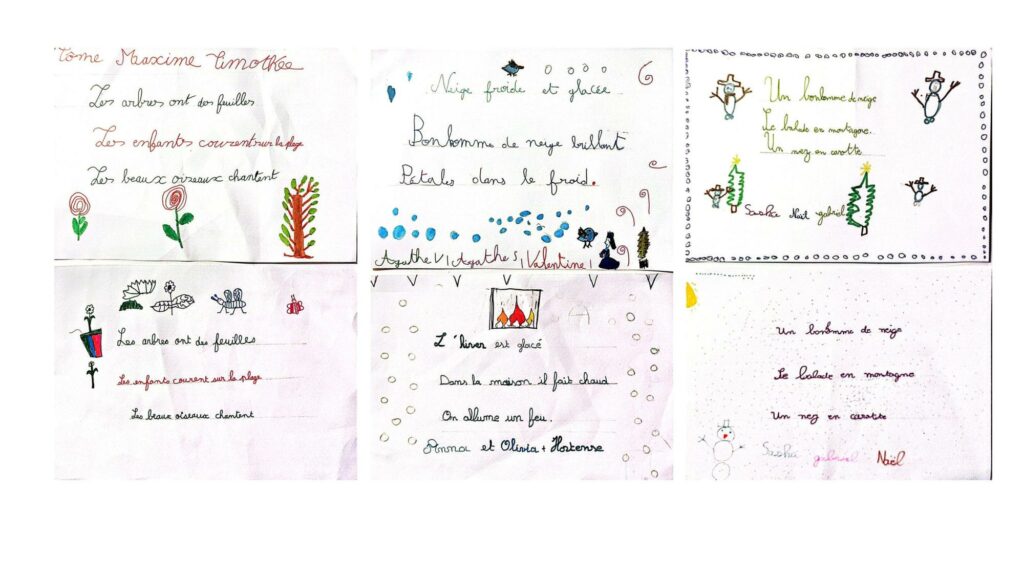 Tôme Maxime Timothée
Les arbres ont des feuilles
Les enfants courent sur la plage
Les beaux oiseaux chantent
Neige froide et glacée
Bonhomme de neige brillant
Pétales dans le froid.
Agathe V Agathe S Valentine
Un bonhomme de neige
Se balade en montagne.
Un nez en carotte
Sasha Naël gabriel
Les arbres ont des feuilles
Les enfants courent sur la plage
Les beaux oiseaux chantent
L'hiver est glacé
Dans la maison il fait chaud
On allume un feu.
Anna et Olivia + Hortense
Un bonhomme de neige
Se balade en montagne
Un nez en carotte
Sasha gabriel Naël